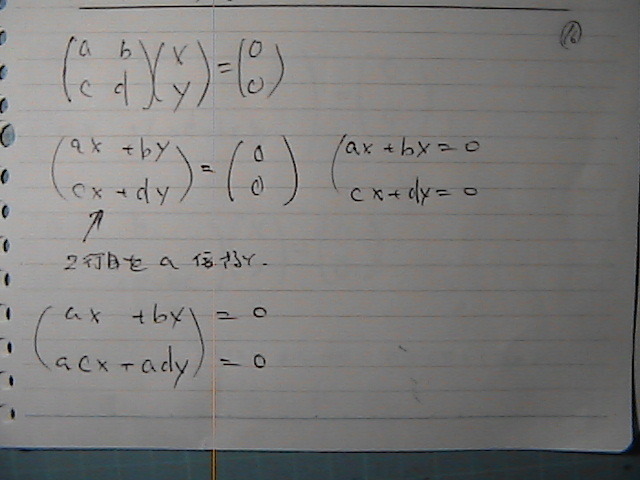 ⑯
(a b
c d)(x
y)=(0
0)
(ax +by
cx+dy)=(0
0) (ax+bx=0
cx+dy=0
2行目を a 倍すると.
(ax +by)=0
(acx+ady)=0